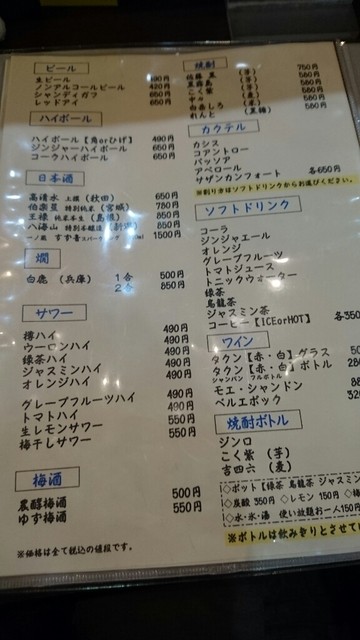 ビール
生ビール 490円
ノンアルコールビール 420円
シャンディガフ 650円
レッドアイ 650円
ハイボール
ハイボール【角orひげ】 490円
ジンジャーハイボール 650円
コーラハイボール 650円
日本酒
高清水 上撰（秋田） 650円
伯楽星 特別純米（宮城） 780円
王祿 純米本生（島根） 850円
八海山 特別本醸造（新潟） 850円
一ノ蔵 すず音 1500円
燗
白鹿（兵庫） 1合 500円
2合 850円
サワー
樽ハイ 490円
ウーロンハイ 490円
緑茶ハイ 490円
ジャスミンハイ 490円
オレンジハイ 490円
グレープフルーツハイ 490円
トマトハイ 490円
生レモンサワー 550円
梅干しサワー 550円
梅酒
濃醇梅酒 500円
ゆず梅酒 550円
※価格は全て税込の値段です。
焼酎
佐藤 黒（芋） 750円
黒霧島（芋） 580円
こく紫（芋） 580円
中々（麦） 580円
白岳しろ（米） 580円
れんと（黒糖） 580円
カクテル
カシス
コアントロー
パッソア
アペロール
サザンカンフォート 各650円
※割り方はソフトドリンクからお選びください。
ソフトドリンク
コーラ
ジンジャエール
オレンジ
グレープフルーツ
トマトジュース
トニックウォーター
緑茶
烏龍茶
ジャスミン茶
コーヒー【ICEorHOT】 各350
ワイン
タウン【赤・白】グラス
タウン【赤・白】ボトル
シャンパン フルボトル
モエ・シャンドン
ベルエポック
焼酎ボトル
ジンロ
こく紫（芋）
吉四六（麦）
◇ポット【緑茶 烏龍茶 ジャスミン
◇炭酸 350円 ◇レモン 150円 ◇梅
◇水・氷・湯 使い放題お一人150円
※ボトルは飲みきりとさせて